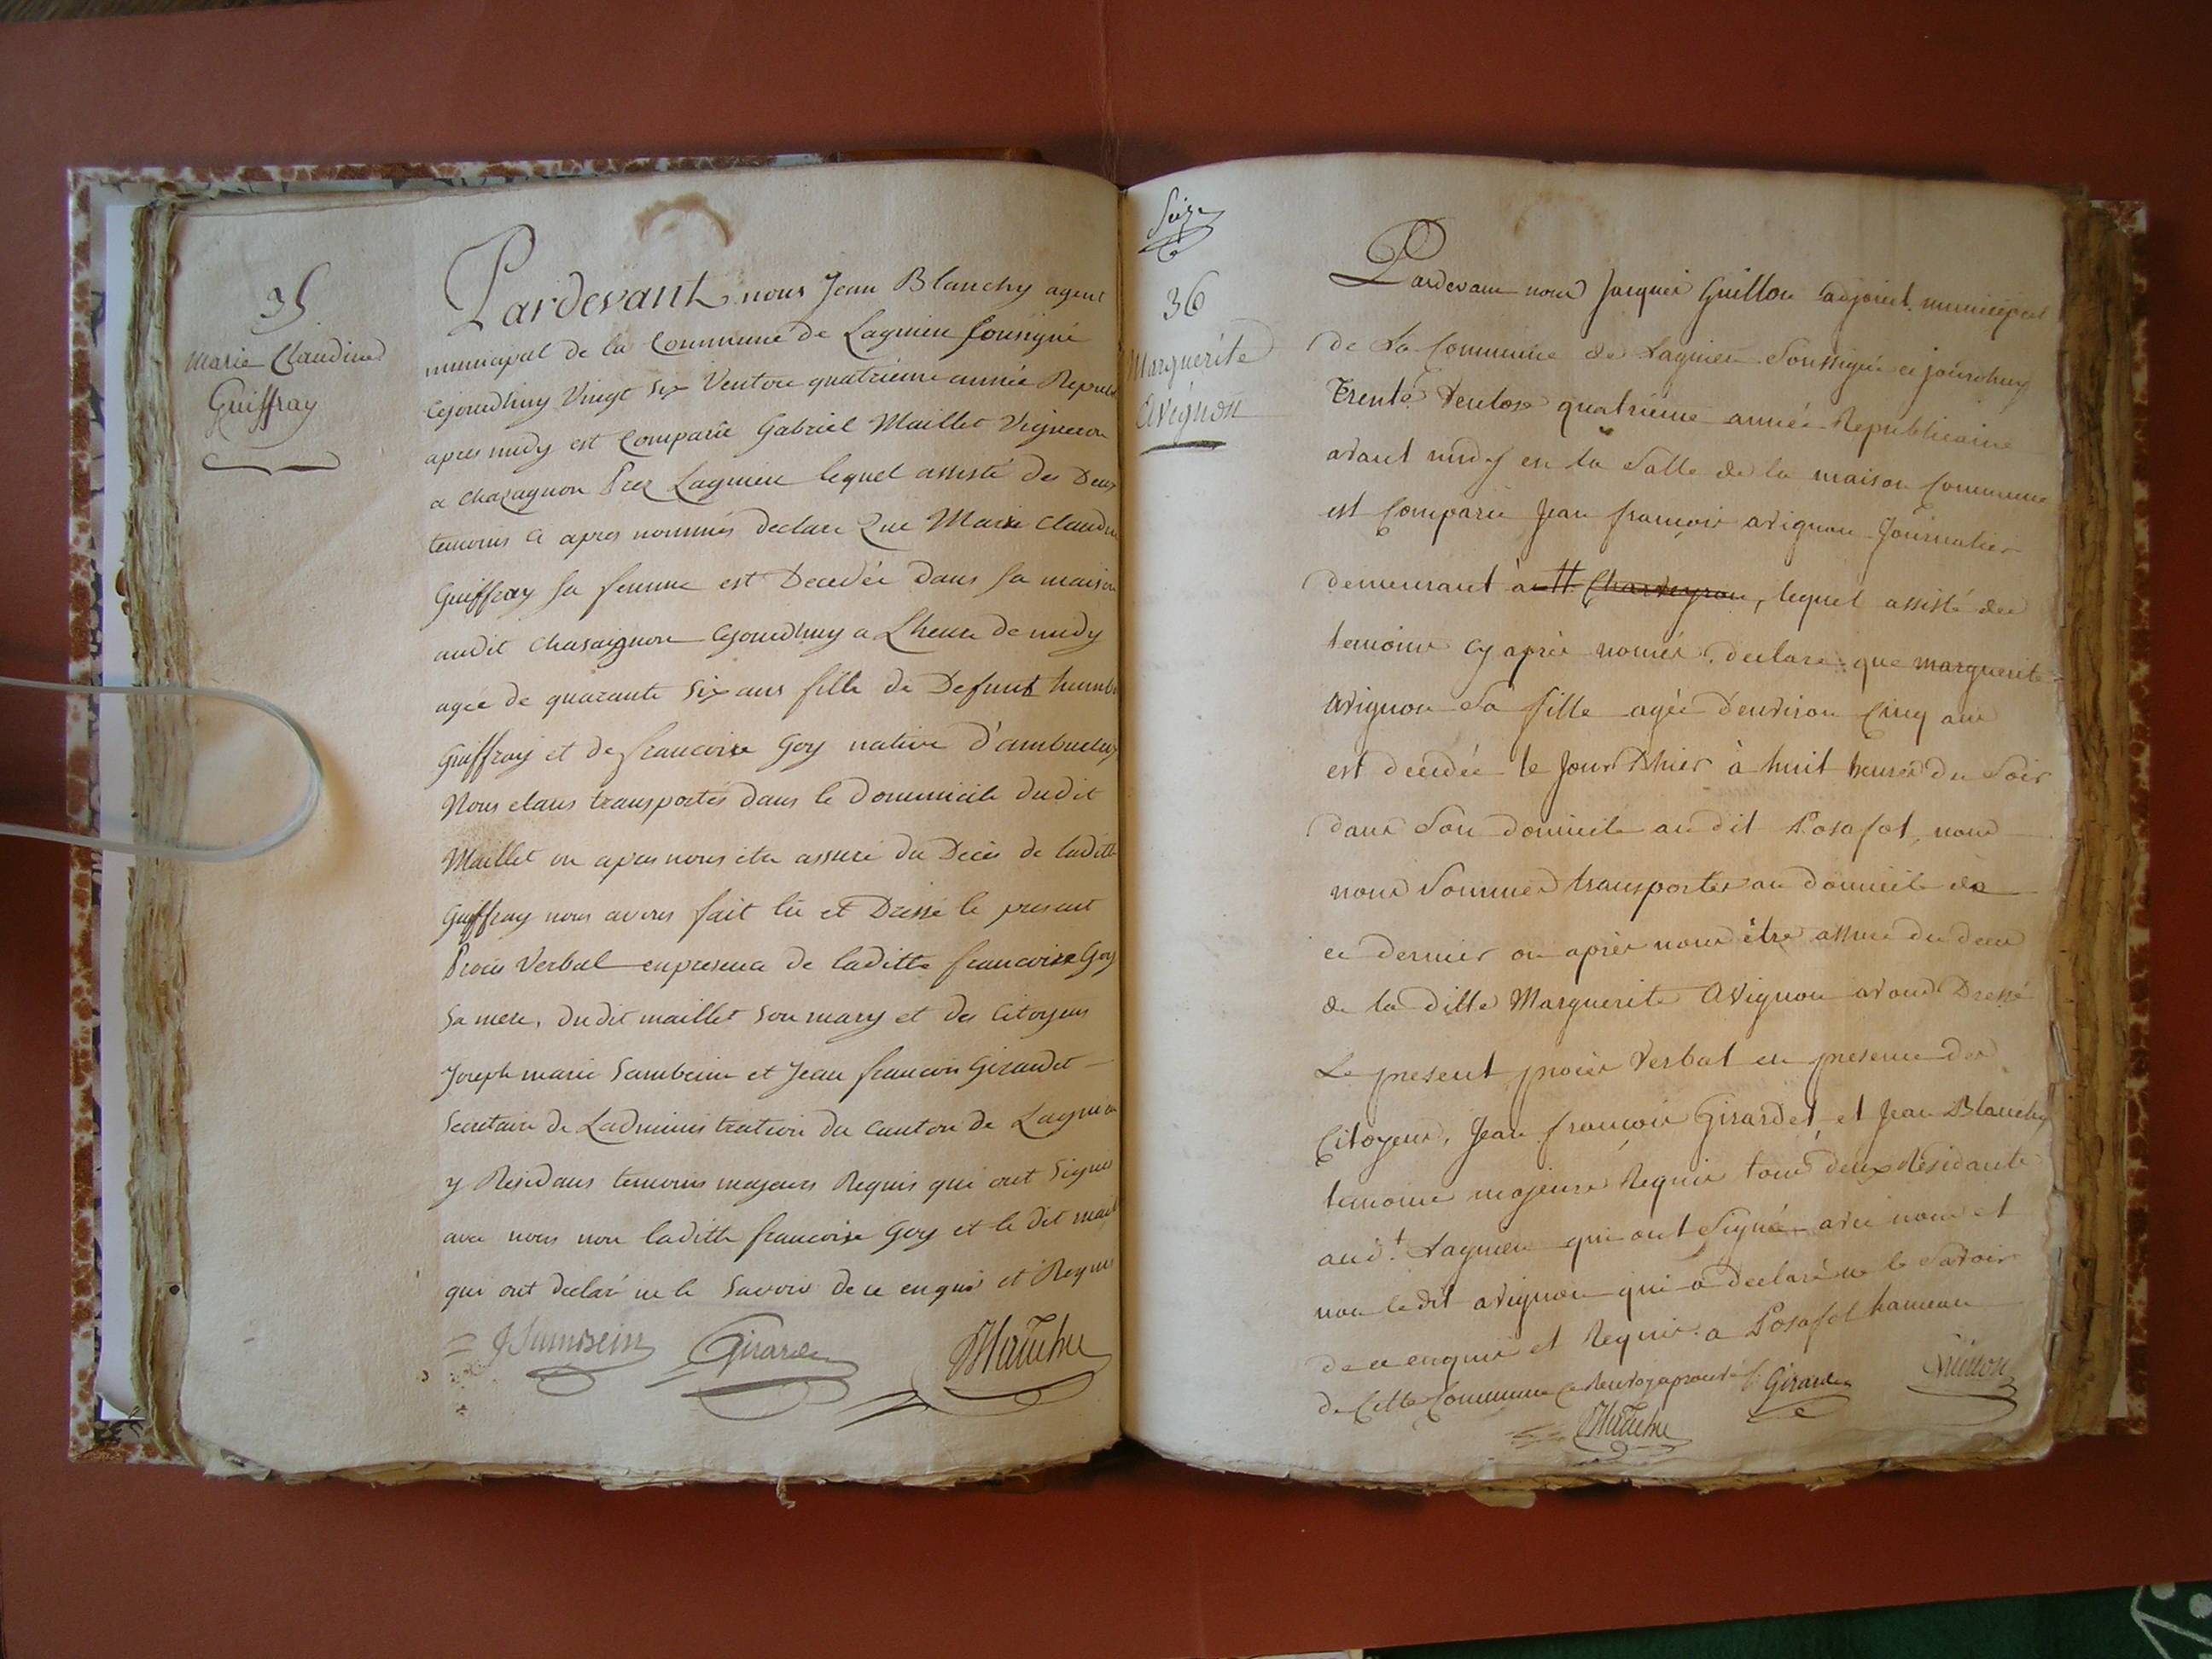 35
Marie Claudine
Guiffray
Pardevant nous Jean Blanchy agent
municipal de la Commune de Lagnieu sousigné
Cejourdhuy Vingt Six Ventose quatrieme année Republ
apres midy est Comparu Gabriel Maillet Vigneron
a Chazagnon Prez Lagnieu lequel assisté des Deux
temoins ci apres nommés declare Que Marie Claudin
Guiffray sa femme est Decedée dans sa maison
audit Chasaignon Cejourdhuy a Lheure de midy
agée de quarante Six ans fille de Defunt humb
Guiffray et de francoise Goy native d'ambutrix
Nous etans transportés dans le Domicile dudit
Maillet ou apres nous etre assuré du Decès de laditte
Guiffray nous avons fait lu et Dressé le present
Procès Verbal en presence de laditte francoise Goy
Sa mere, dudit maillet Son mary et des Citoyens
Joseph marie Sambein et Jean francois Girardet
Secretaire de Ladministration du Canton de Lagnieu
y Residans temoins majeurs Requis qui ont Signés
avec nous non laditte francoise Goy et le dit mail
qui ont declaré ne le Savoir de ce enquis et Requis
Girardet
Blanchy
Seize
36
Marguerite
Avignon
Pardevant nous Jacques Guillon adjoint municipal
de La Commune de Lagnieu Soussigné ce jourdhuy
Trente Ventose quatrieme année Republicaine
avant midy en la Salle de la maison Commune
est Comparu Jean françois avignon Journalier
demeurant à # Charveyron, lequel assisté des
temoins cy après només, declare que marguerite
Avignon Sa fille agée d'environ Cinq ans
est decedée le Jour Dhier à huit heures du Soir
dans Son domicile au dit Posafol, nous
nous Sommes transportés au domicile de
ce dernier ou après nous être assuré du deces
de la ditte Marguerite Avignon avons Dressé
Le present procès Verbal en presence des
Citoyens, Jean françois Girardet et Jean Blanchy
temoins majeurs Requis tous deux Residants
aud.t Lagnieu qui ont Signé avec nous et
non le dit avignon qui a declaré ne le Savoir
de ce enquis et Requis. a Posafol hameau
de Cette Commune Ce Renvoy aprouvé Girardet Guillon
Blanchy